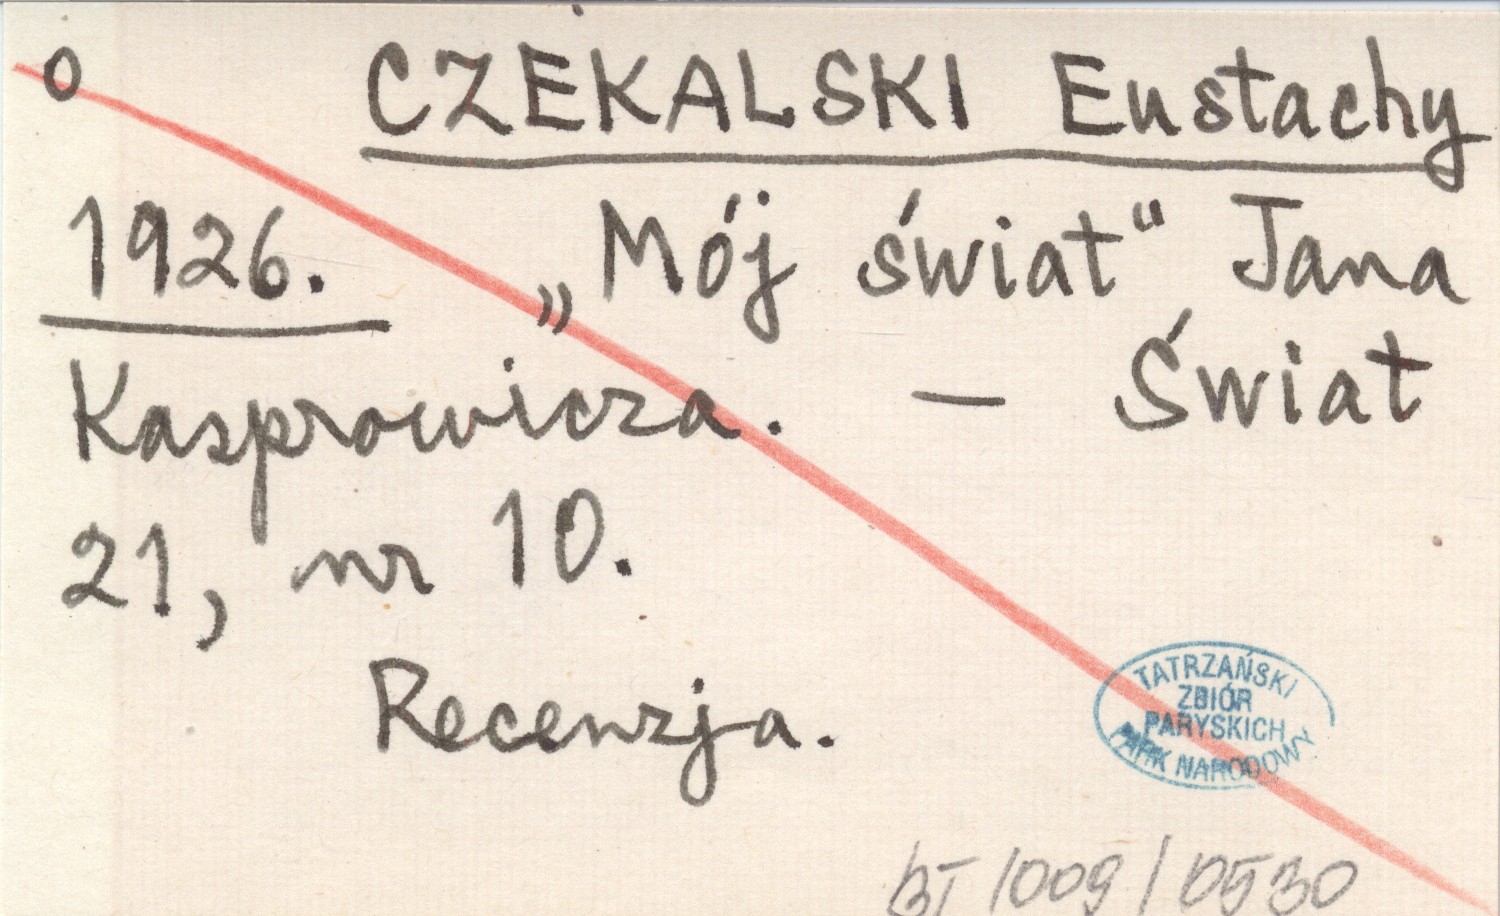 o CZEKALSKI Eustachy
1926. „Mój świat“ Jana
Kasprowicza. — Świat
21, nr 10.
Recenzja.
TATRZAŃSKI
ZBIÓR
PARYSKICH
PARK NARODOWY
BT 1009/0530